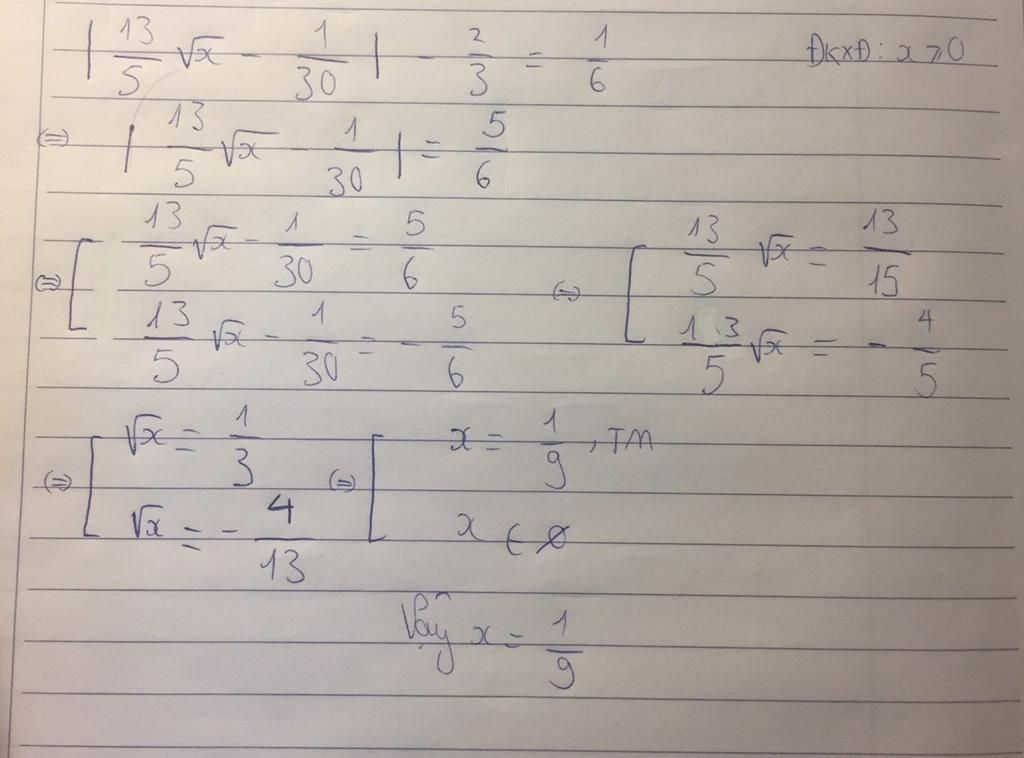 | 13/5 √x - 1/30 | - 2/3 = 1/6 ĐKXĐ: x ≥ 0
⇔ | 13/5 √x - 1/30 | = 5/6
⇔ [ 13/5 √x - 1/30 = 5/6 ⇔ [ 13/5 √x = 13/15
13/5 √x - 1/30 = - 5/6 13/5 √x = - 4/5
⇔ [ √x = 1/3 ⇔ [ x = 1/9 , TM
√x = - 4/13 x ∈ ∅
Vậy x = 1/9